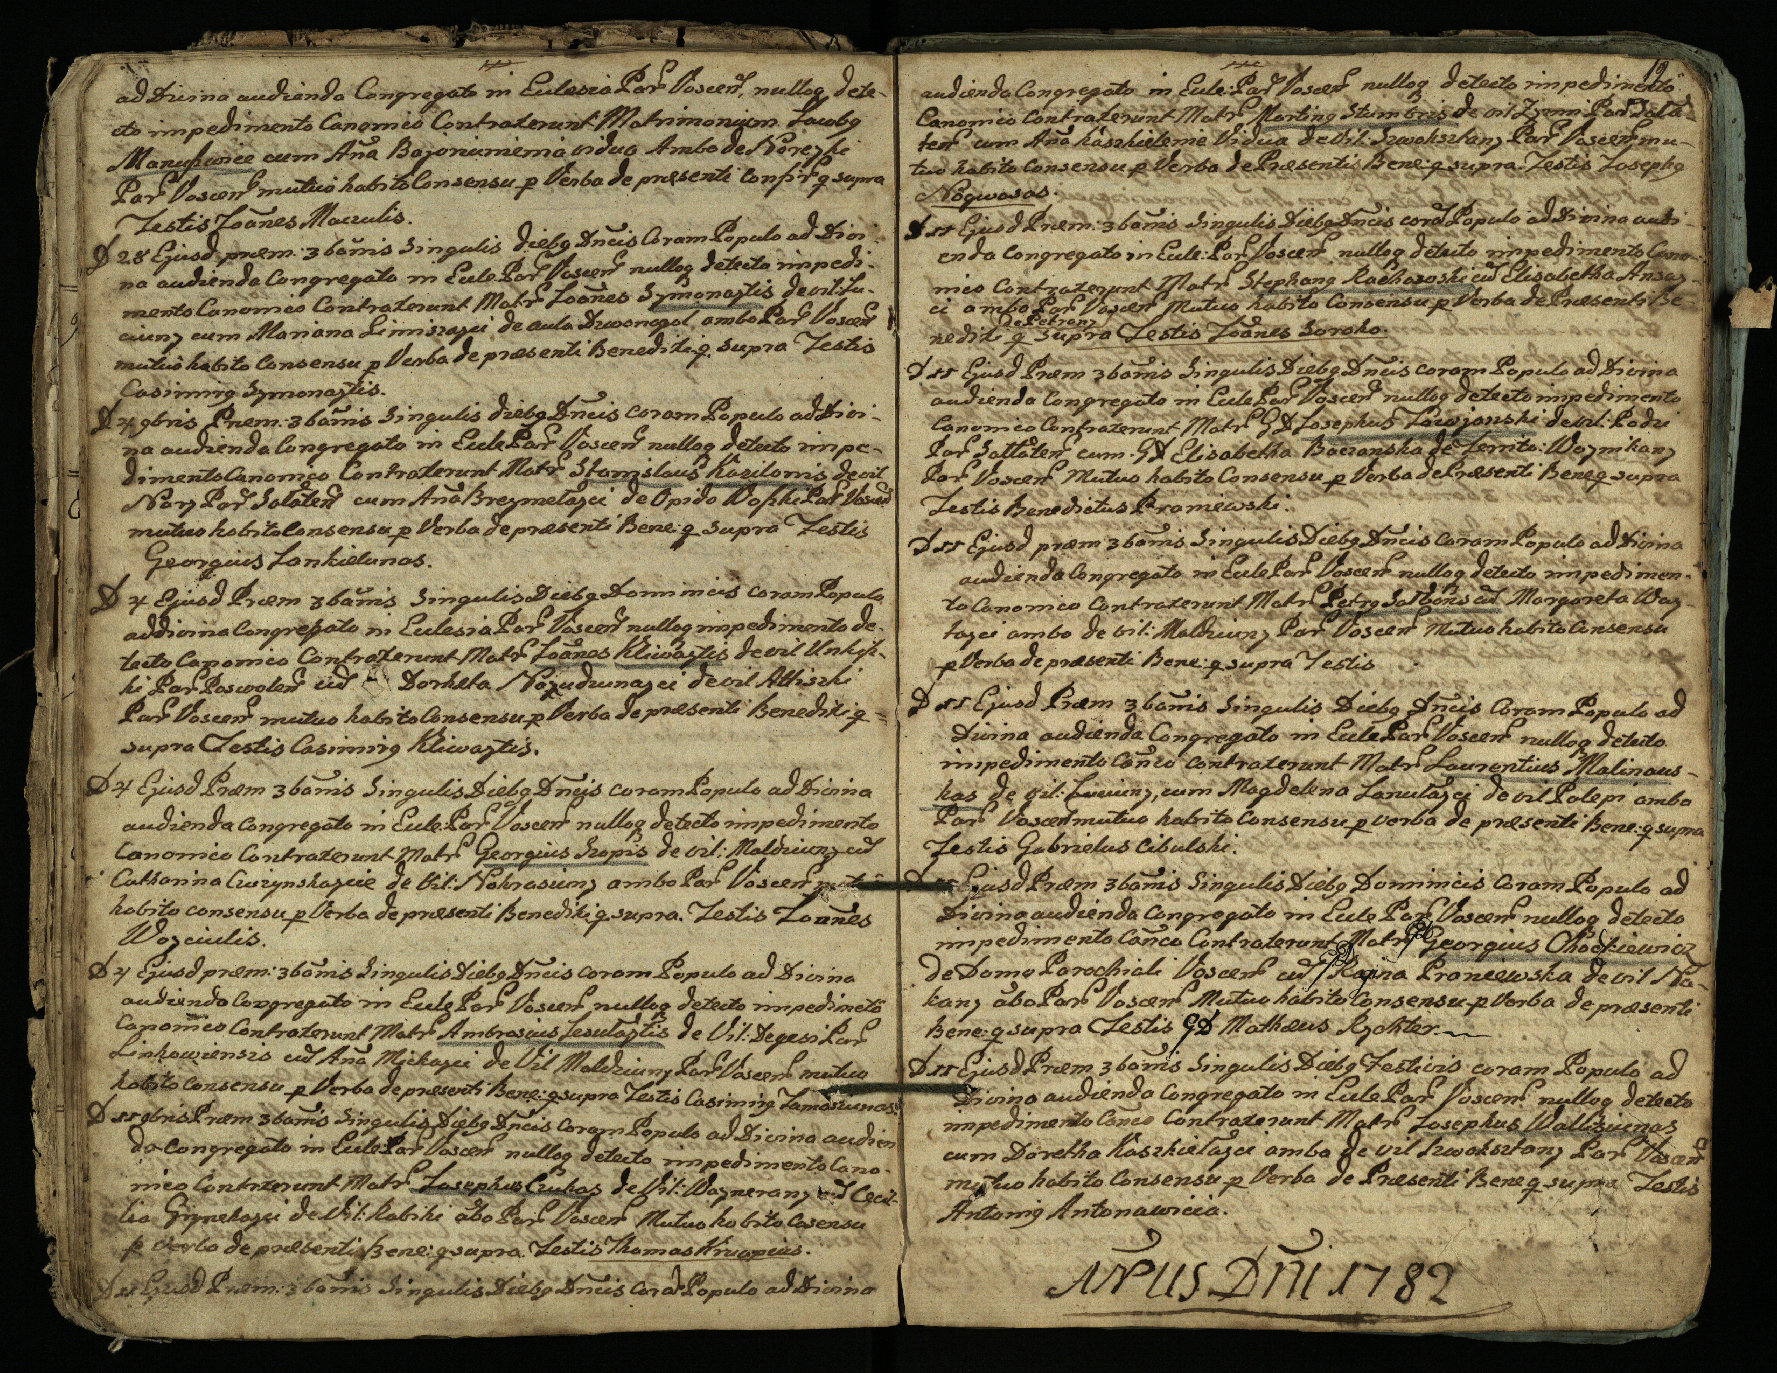 ad Divina audienda Congregato in Ecclesia Par Voscen nulloq dete-
cto impedimento Canonico Contraxerunt Matrimonium Jacobq
cum Aña vidua Ambo de
Par Voscen mutuo habito Consensu p Verba de præsenti confirq supra
Testis Joañes Maculis.
D 28 Ejusd præm: 3 bañis Singulis diebq Dñcis Coram Populo ad Divi-
na audienda Congregato in Eccle Par Voscen nulloq detecto impedi-
mento Canonico Contraxerunt Matr Joañes Szymonaytis de vil: Lu-
ciuny cum Mariana de aula ambo Par Voscen
mutuo habito Consensu p Verba de præsenti Benedixiq supra Testis
Casimirq Szymonaytis.
D 4 9bris Præm: 3 bañis Singulis diebq Dñcis coram Populo ad Divi-
na audienda Congregato in Eccle Par Voscen nulloq detecto impe-
dimento Canonico Contraxerunt Matr Stanislaus de vil
Par Salaten cum Aña de Opido Par Voscen
mutuo habito Consensu p Verba de præsenti Bene: q supra Testis
Georgius Lankielunas.
D 4 Ejusd Præm 3 bañis Singulis Diebq Dominicis coram Populo
ad divina Congregato in Ecclesia Par Voscen nulloq impedimento de-
tecto Canonico Contraxerunt Matr Joañes Kliwaytis de vil
ki Par Poswolen cũ Dorheta de vil
Par Voscen mutuo habito Consensu p Verba de præsenti Benedixiq
supra Testis Casimirq Kliwaytis.
D 4 Ejusd Præm 3 bañis Singulis Diebq Dñcis coram Populo ad Divina
audienda congregato in Eccle: Par Voscen nulloq detecto impedimento
Canonico Contraxerunt Matr Georgius Szopis de vil: Maldziuny cũ
Catharina de Vil: Nakrasiuny ambo Par Voscen
habito consensu p Verba de præsenti Benedixiq supra. Testis Joañes
Woyciulis.
D 4 Ejusd præm: 3 bañis Singulis Diebq Dñcis coram Populo ad Divina
audienda Congregato in Eccle Par Voscen nulloq detecto impedimẽto
Canonico Contraxerunt Matr Ambrosius de Vil: Degesi Par
Linkowiensis cũ Aña de Vil Maldziuny Par Voscen mutuo
habito Consensu p Verba de præsenti Bene: q supra Testis Casimirq Tamoszunas
D 11 9bris Præm 3 bañis Singulis Diebq Dñcis Coram Populo ad Divina audien
da Congregato in Eccle Par Voscen nulloq detecto impedimento Cano-
nico Contraxerunt Matr Josephus Czukas de Vil: cũ Cecil-
lia de Vil: Rabiki ãbo Par Voscen Mutuo habito Cosensu
p verba de præsenti Bene: q supra. Testis Thomas
D 11 Ejusd Præm: 3 bañis Singulis Diebq Dñcis Corã Populo ad Divina
19
audienda Congregato in Eccle: Par Voscen nulloq detecto impedimento
Canonico Contraxerunt Matr Martinq Stumbris de vil Par Sala-
ten cum Aña Vidua de Vil: Par Voscen mu-
tuo habito Consensu p Verba de Præsentis Bene: q supra Testis Josephq
Nogwosas.
D 11 Ejusd Præm: 3 bañis Singulis Diebq Dñcis corã Populo ad Divina audi-
enda Congregato in Eccle: Par Voscen nulloq detecto impedimento Cano-
nico Contraxerunt Matr Stephanq cũ Elisabetha
ci ambo Par Voscen Mutuo habito Consensu p Verba de Præsenti Be-
nedixi q supra Testis Joañes Soroko.
D 11 Ejusd Præm 3 bañis Singulis Diebq Dñcis coram Populo ad Divina
audienda Congregato in Eccle Par Voscen nulloq detecto impedimento
Canonico Contraxerunt Matr GD Josephus de vil: Podzi
Par Sallaten cum GD Elisabetha de Territo:
Par Voscen Mutuo habito Consensu p Verba de Præsenti Bene q supra
Testis Benedictus Praniewski.
D 11 Ejusd præm 3 bañis Singulis Diebq Dñcis coram Populo ad Divina
audienda Congregato in Eccle Par Voscen nulloq detecto impedimen-
to Canonico Contraxerunt Matr Petrq cũ Margareta Way-
tayci ambo de vil: Maldziuny Par Voscen Mutuo habito Consensu
p Verba de præsenti Bene: q supra Testis
D 11 Ejusd Præm 3 bañis Singulis Diebq Dñcis Coram Populo ad
Divina audienda Congregato in Eccle Par Voscen nulloq detecto
impedimento Cañco Contraxerunt Matr Laurentius Malinaus-
kas de vil: Luciuny, cum Magdelena de vil Polepi ambo
Par Voscen mutuo habito Consensu p verba de præsenti Bene: q supra
Testis Gabrielus Cibulski.
Ejusd Præm 3 bañis Singulis Diebq Dominicis Coram Populo ad
Divina audienda Congregato in Eccle Par Voscen nulloq detecto
impedimento Cañco Contraxerunt Matr GD Georgius Chodkiewicz
de Domo Parochiali Voscen cũ GD Praniewska de vil Na-
kany ãbo Par Voscen Mutuo habito Consensu p Verba de præsenti
Bene: q supra Testis GD Mathæus Rychter.
D 11 Ejusd Præm 3 bañis Singulis Diebq Festivis coram Populo ad
Divina audienda Congregato in Eccle Par Voscen nulloq detecto
impedimento Cañco Contraxerunt Matr Josephus
cum Doretha ambo de vil Par Voscen
mutuo habito Consensu p Verba de Præsenti Bene q supra Testis
Antoniq Antonawicia.
AÑUS DÑI 1782